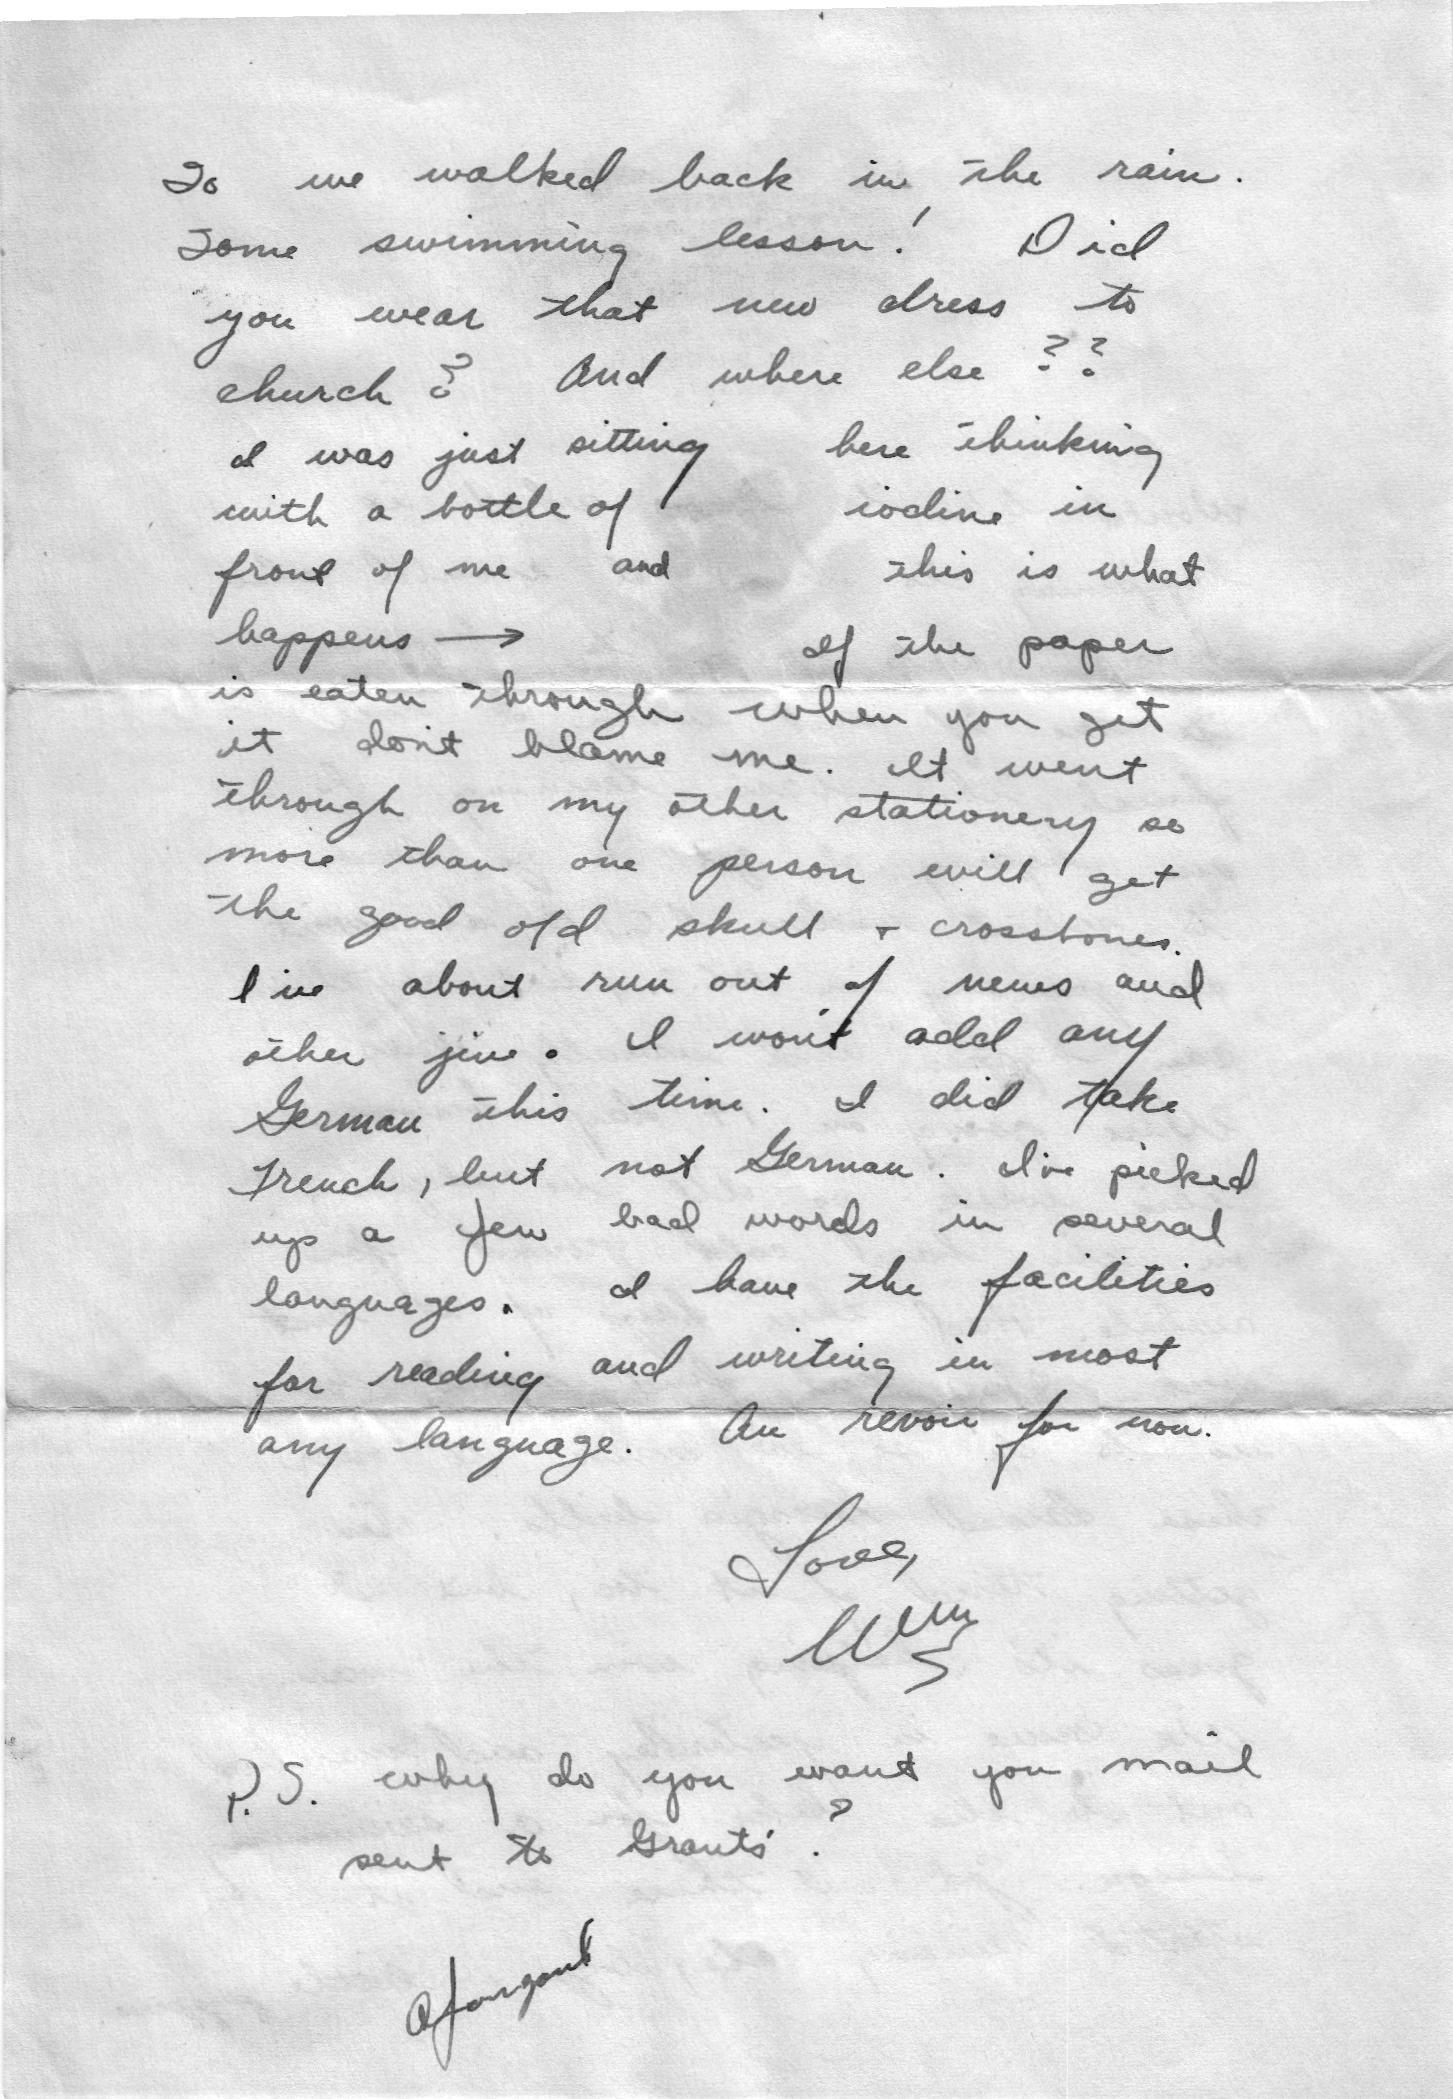 So we walked back in the rain.
Some swimming lesson! Did
you wear that new dress to
church? And where else??
I was just sitting here thinking
with a bottle of iodine in
front of me and this is what
happens → If the paper
is eaten through when you get
it don't blame me. It went
through on my other stationery so
more than one person will get
the good old skull + crossbones.
I've about run out of news and
other jive. I won't add any
German this time. I did take
French, but not German. I've picked
up a few bad words in several
languages. I have the facilities
for reading and writing in most
any language. Au revoir for now.
Love,
Wm
P.S. Why do you want you mail
sent to Grants'?